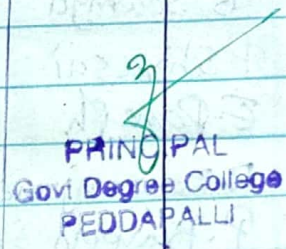 PRINCIPAL
Govt Degree College
PEDDAPALLI